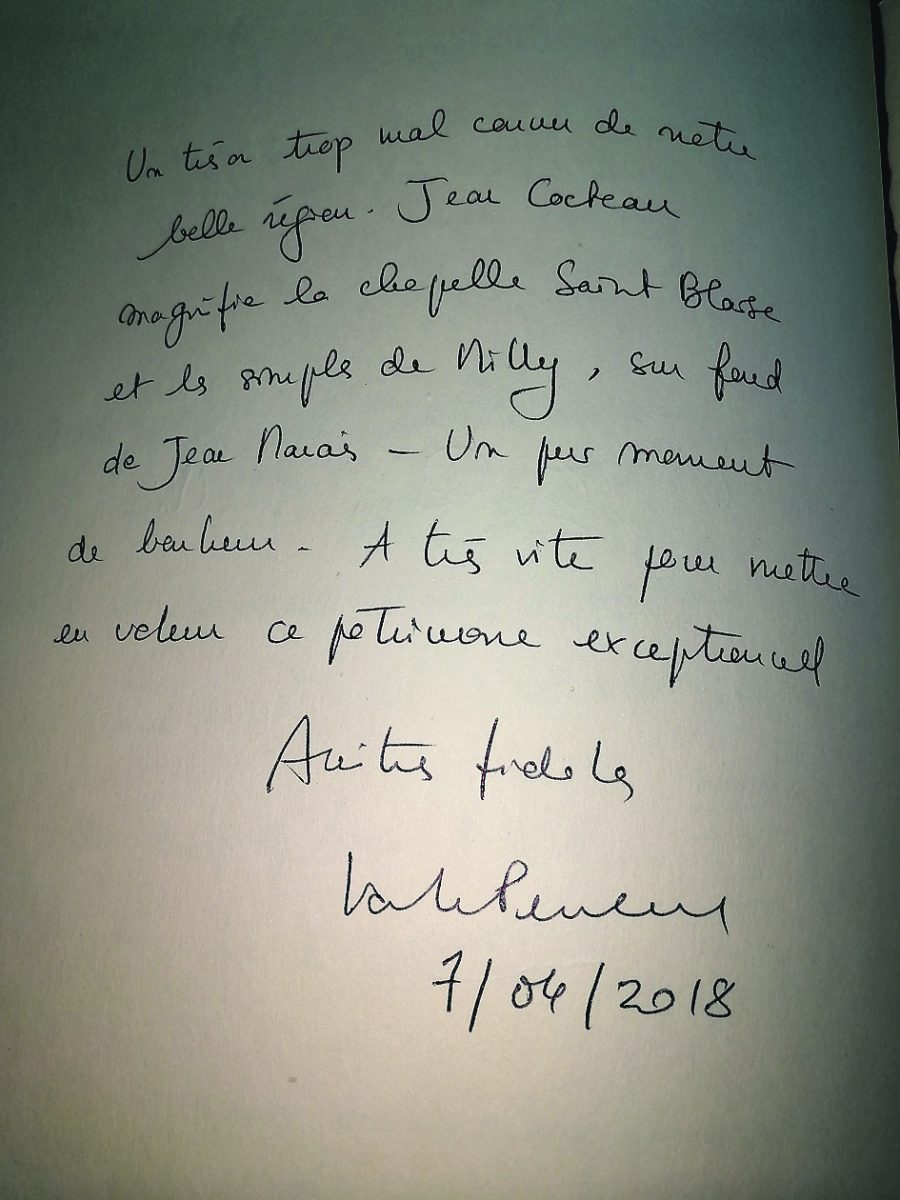 Un trésor trop mal connu de notre
belle région. Jean Cocteau
magnifie la chapelle Saint Blaise
et les simples de Milly, sur fond
de Jean Marais – Un pur moment
de bonheur. A très vite pour mettre
en valeur ce patrimoine exceptionnel
Amitiés fidèles
7/04/2018